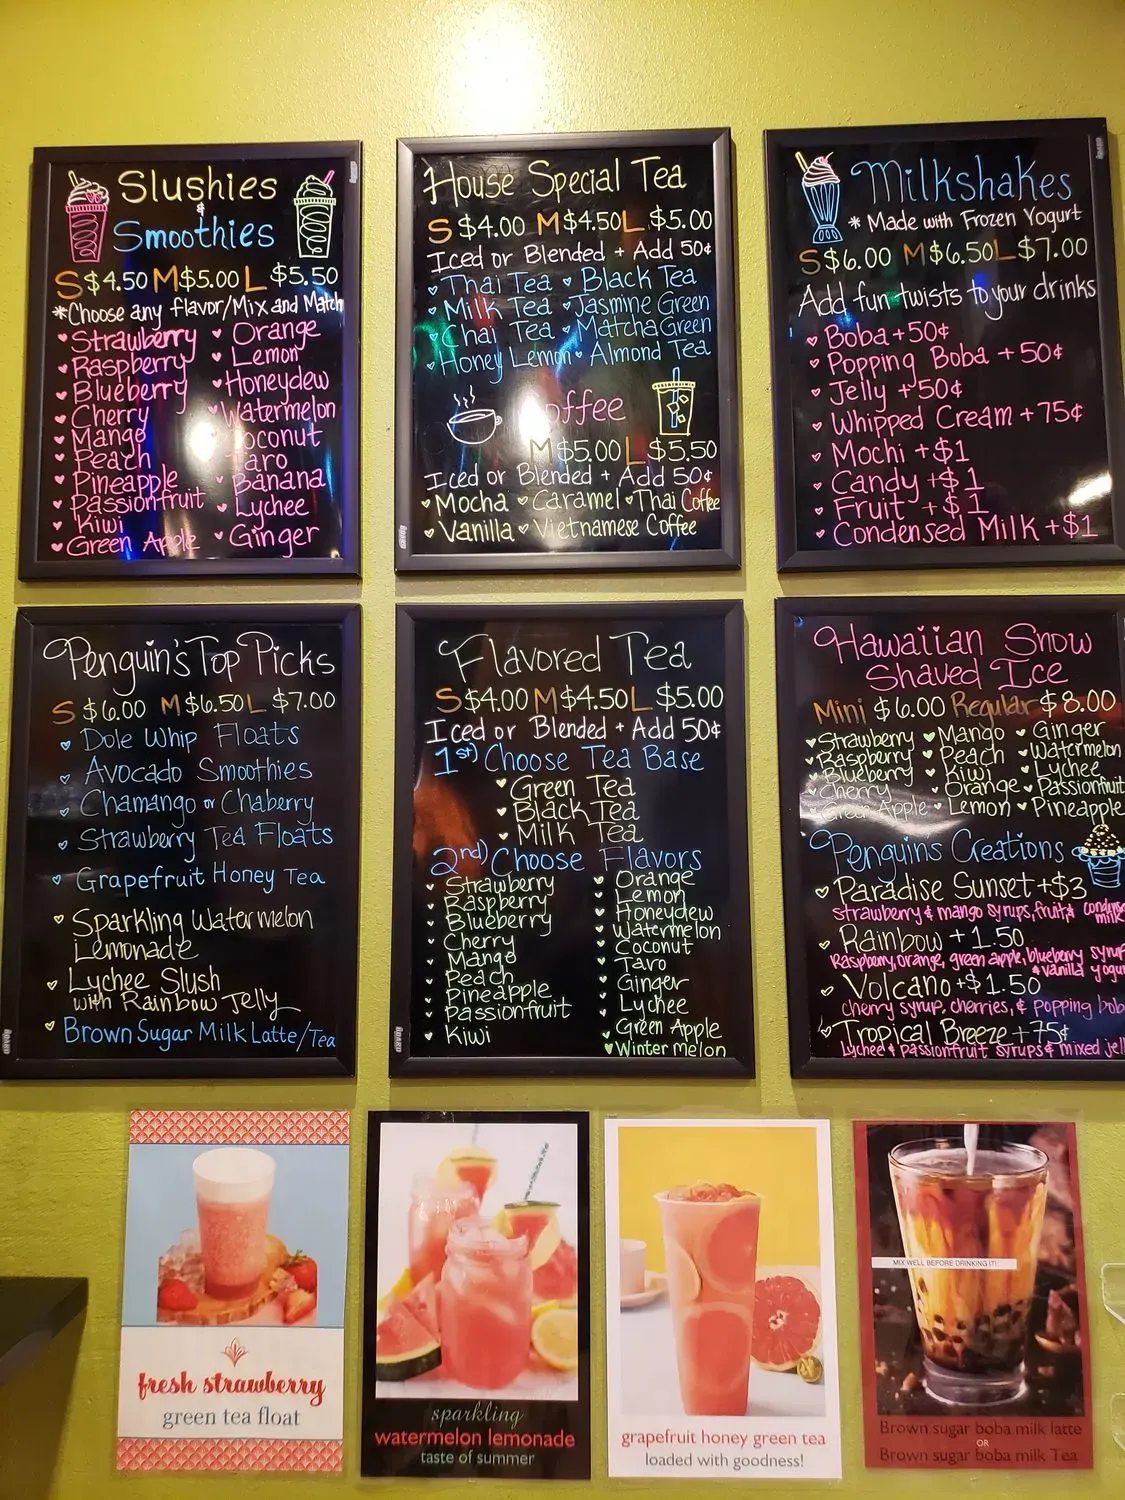 Slushies
&
Smoothies
S $4.50 M $5.00 L $5.50
*Choose any flavor/Mix and Match
Strawberry
Raspberry
Blueberry
Cherry
Mango
Peach
Pineapple
Passionfruit
Kiwi
Green Apple
Orange
Lemon
Honeydew
Watermelon
Coconut
Taro
Banana
Lychee
Ginger
House Special Tea
S $4.00 M $4.50 L $5.00
Iced or Blended + Add 50¢
Thai Tea Black Tea
Milk Tea Jasmine Green
Chai Tea Matcha Green
Honey Lemon Almond Tea
Coffee
M $5.00 L $5.50
Iced or Blended + Add 50¢
Mocha Caramel Thai Coffee
Vanilla Vietnamese Coffee
Milkshakes
* Made with Frozen Yogurt
S $6.00 M $6.50 L $7.00
Add fun twists to your drinks
Boba +50¢
Popping Boba +50¢
Jelly +50¢
Whipped Cream +75¢
Mochi +$1
Candy +$1
Fruit +$1
Condensed Milk +$1
Penguin's Top Picks
S $6.00 M $6.50 L $7.00
Dole Whip Floats
Avocado Smoothies
Chamango or Chaberry
Strawberry Tea Floats
Grapefruit Honey Tea
Sparkling Watermelon
Lemonade
Lychee Slush
with Rainbow Jelly
Brown Sugar Milk Latte/Tea
Flavored Tea
S $4.00 M $4.50 L $5.00
Iced or Blended + Add 50¢
1st) Choose Tea Base
Green Tea
Black Tea
Milk Tea
2nd) Choose Flavors
Strawberry
Raspberry
Blueberry
Cherry
Mango
Peach
Pineapple
Passionfruit
Kiwi
Orange
Lemon
Honeydew
Watermelon
Coconut
Taro
Ginger
Lychee
Green Apple
Winter Melon
Hawaiian Snow
Shaved Ice
Mini $6.00 Regular $8.00
Strawberry Mango Ginger
Raspberry Peach Watermelon
Blueberry Kiwi Lychee
Cherry Orange Passionfruit
Green Apple Lemon Pineapple
Penguin's Creations
Paradise Sunset +$3
strawberry & mango syrups, fruit, & condensed
milk
Rainbow +1.50
Raspberry, orange, green apple, blueberry syrup
& vanilla yogu
Volcano +$1.50
cherry syrup, cherries, & popping bob
Tropical Breeze +75¢
Lychee & passionfruit syrups & mixed jell
fresh strawberry
green tea float
sparkling
watermelon lemonade
taste of summer
grapefruit honey green tea
loaded with goodness!
MIX WELL BEFORE DRINKING IT!
Brown sugar boba milk latte
OR
Brown sugar boba milk Tea